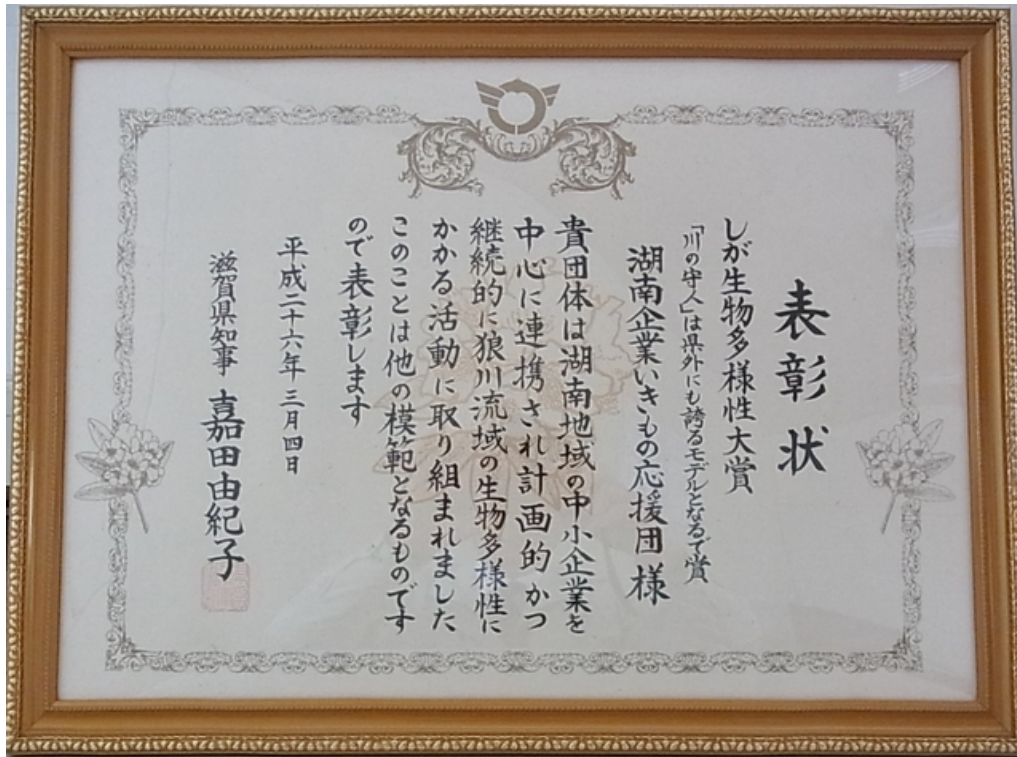 表彰状
しが生物多様性大賞
「川の守人」は県外にも誇るモデルとなるで賞
湖南企業いきもの応援団 様
貴団体は湖南地域の中小企業を
中心に連携され計画的かつ
継続的に狼川流域の生物多様性に
かかる活動に取り組まれました
このことは他の模範となるものです
ので表彰します
平成二十六年三月四日
滋賀県知事 嘉田由紀子